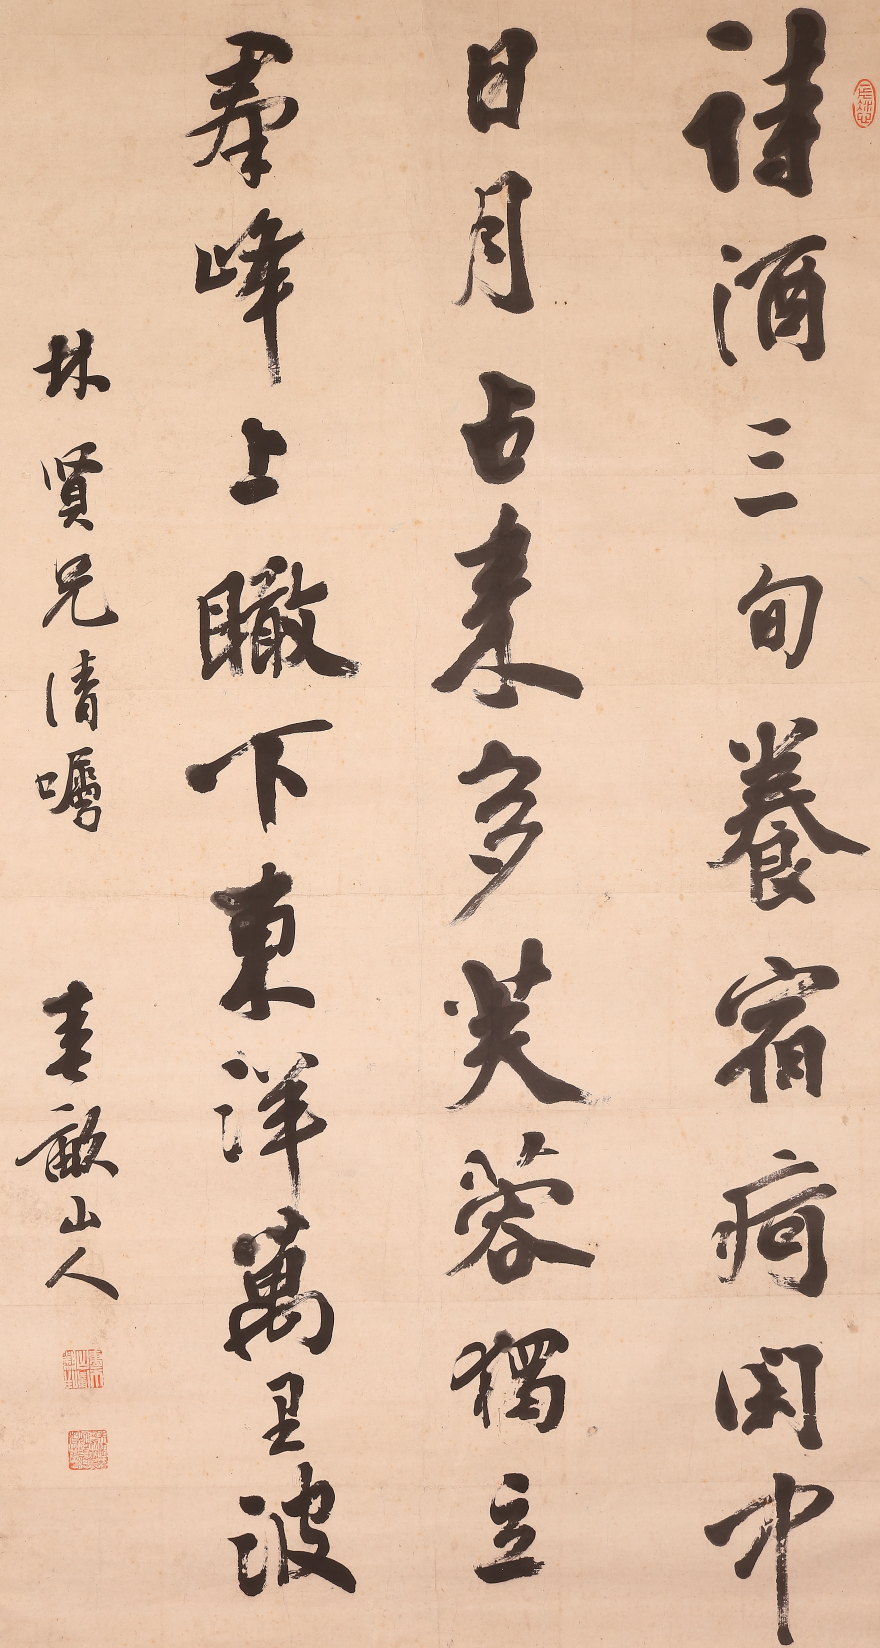 詩酒三旬養宿痾閑中
日月占来多芙蓉獨立
羣峰上瞰下東洋萬里波
林賢兄清嘱 春畝山人